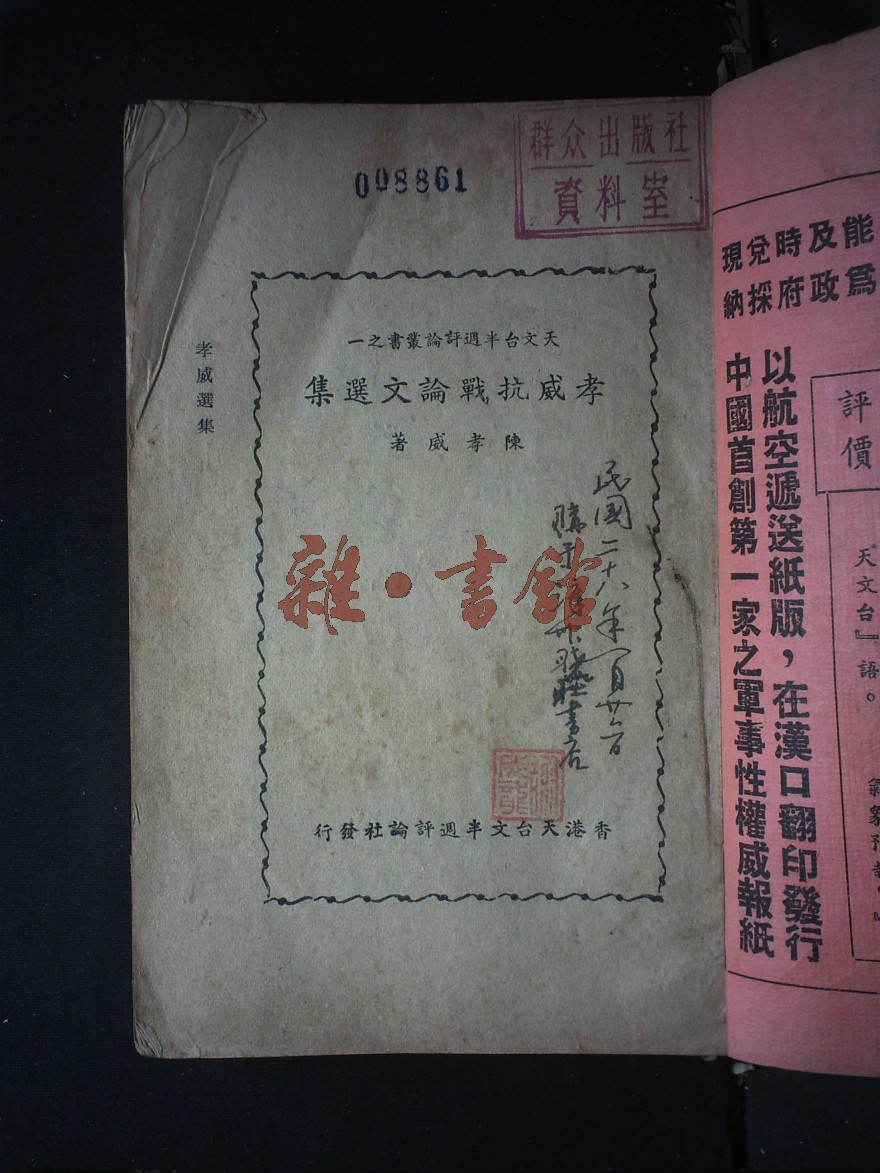 群众出版社
資料室
008861
天文台半週評論叢書之一
孝威抗戰論文選集
陳孝威著
民國二十八年一月廿六日
購于
書店
香港天台文半週評論社發行
孝威選集
雜·書館
能及時兌現
爲政府採納
評價
以航空遞送紙版，在漢口翻印發行
中國首創第一家之軍事性權威報紙
天文台』語。